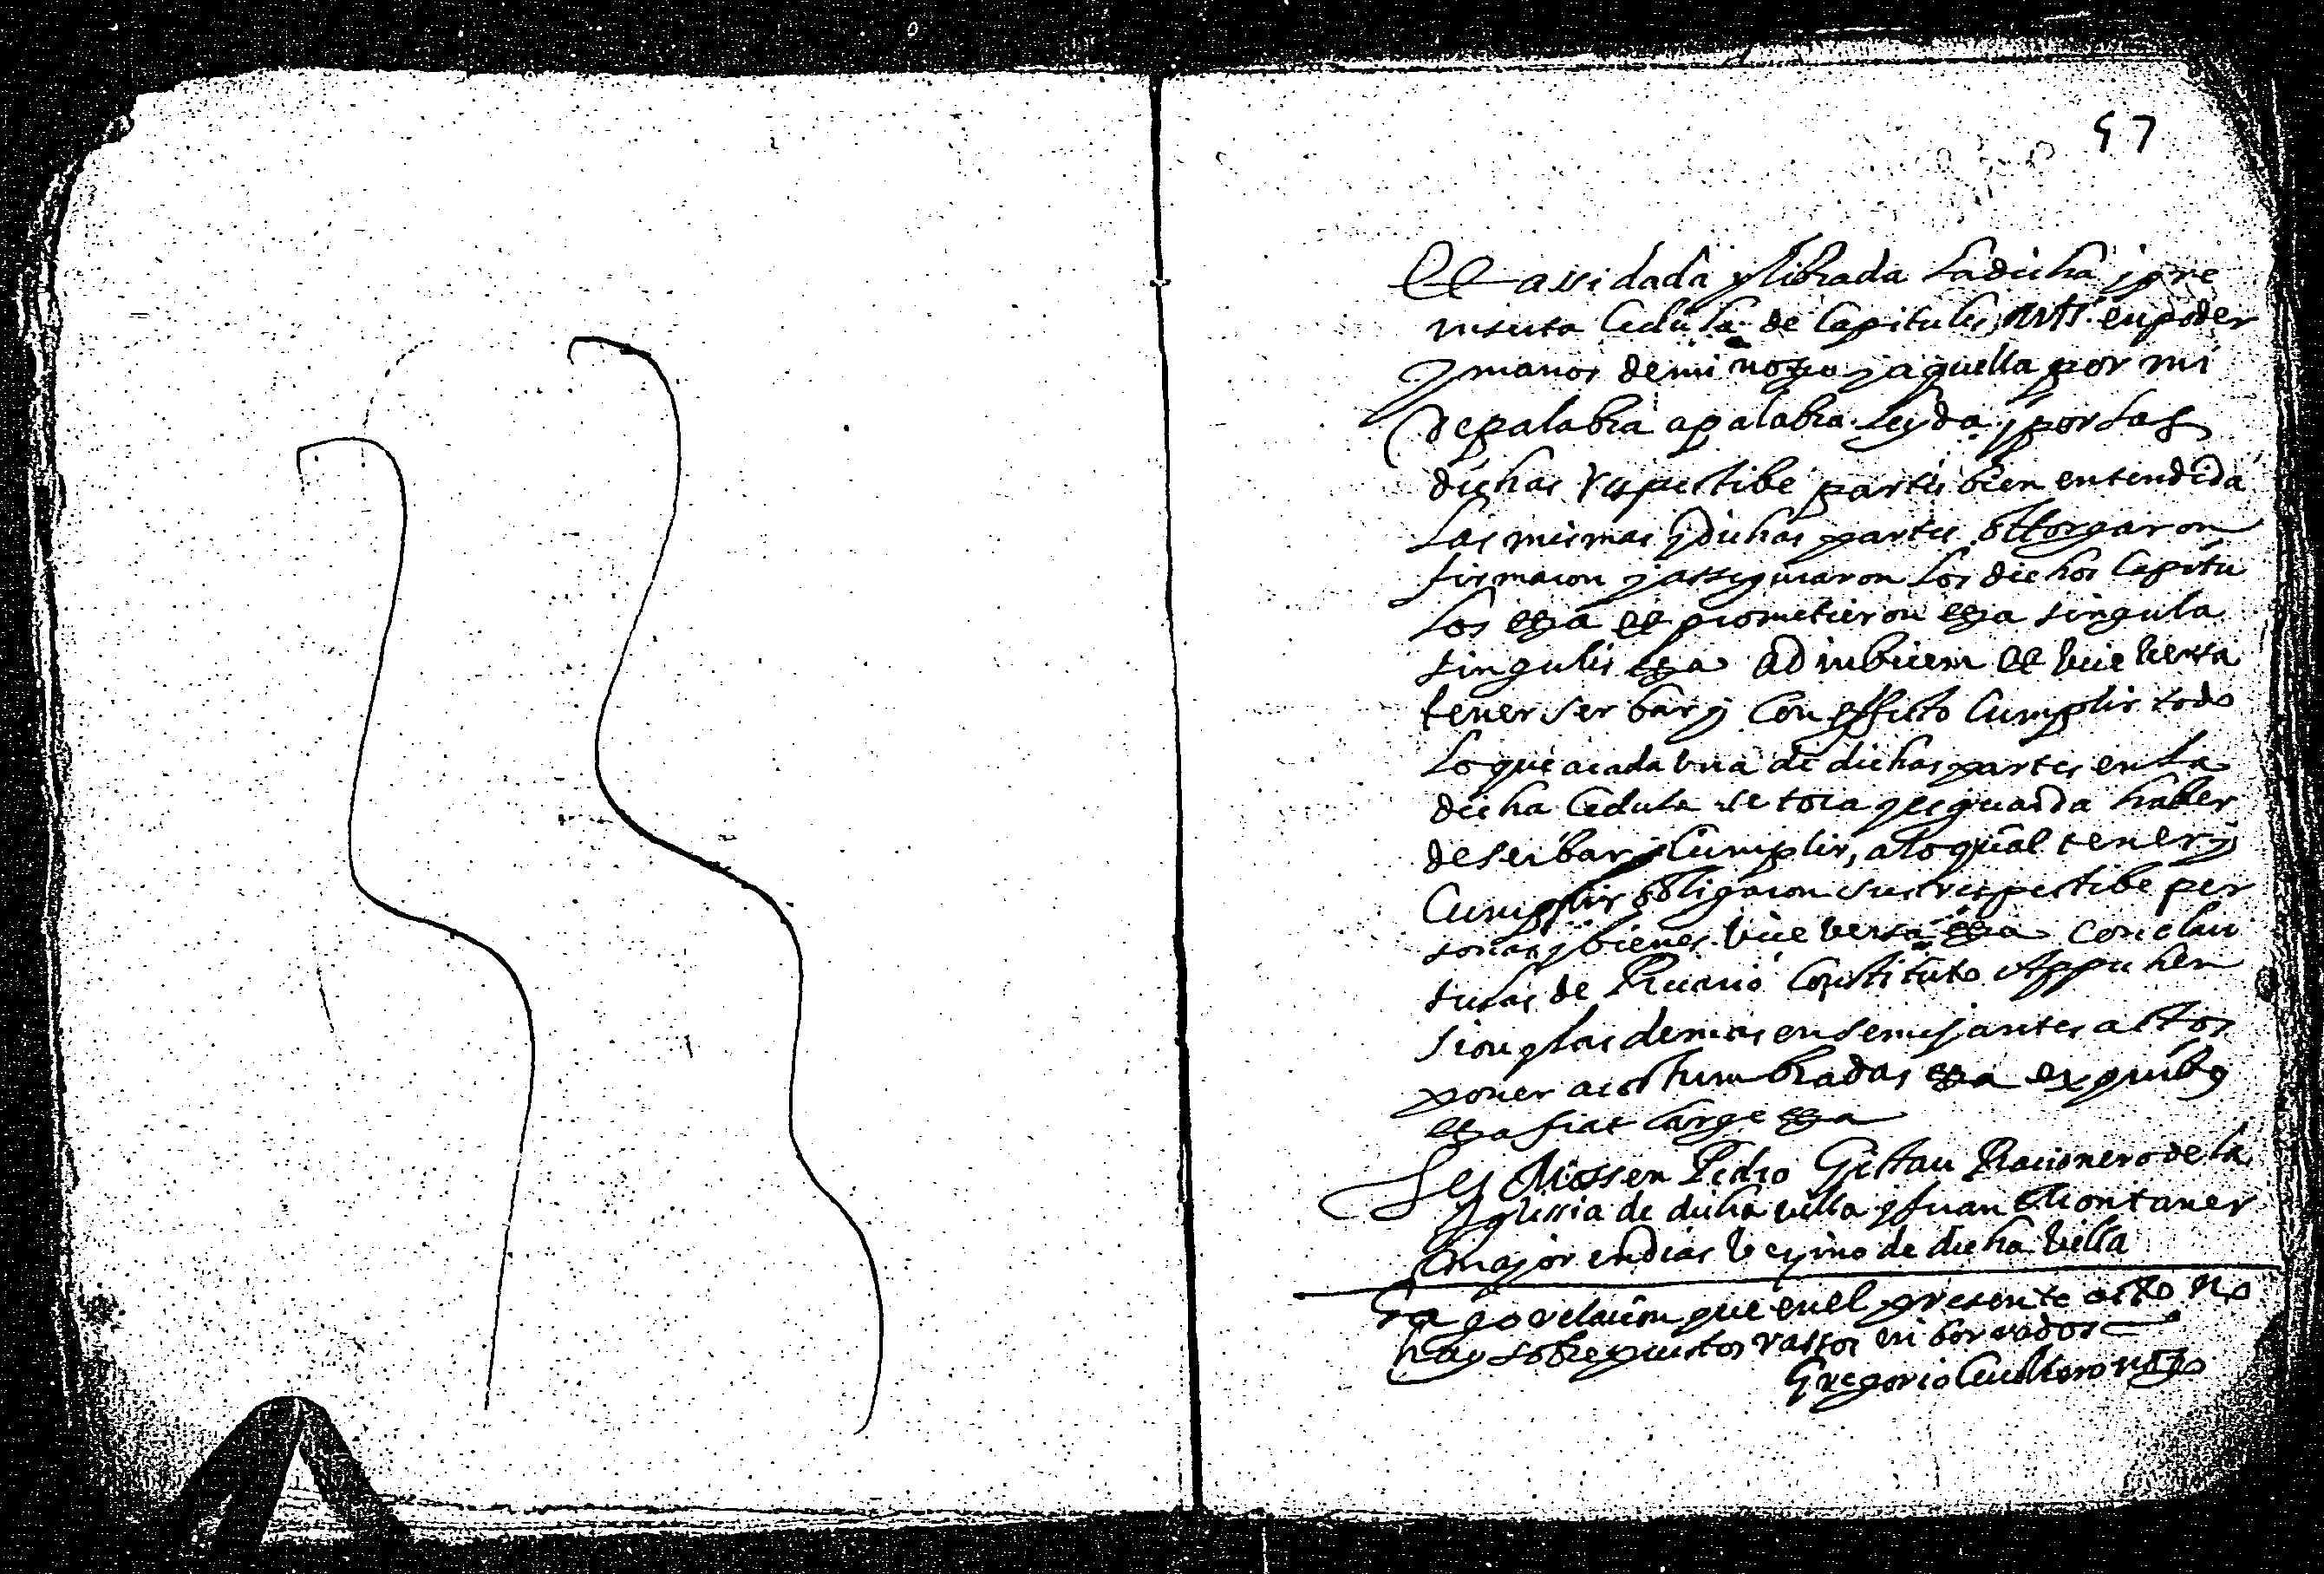 57
Et assi dada y librada la dicha y pre
inserta cedula de capitules mts. en poder
y manos de mi notrio y aquella por mi
de palabra a palabra leyda y por las
dichas respectibe partes bien entendida
las mismas y dichas partes ottorgaron
firmaron y asseguraron los dichos capitu
los etza et prometieron etza singula
singulis etza ad inbicem et bice bersa
tener serbar y con effecto cumplir todo
lo que a cada una de dichas partes en la
dicha cedula se toca y esguarda haber
de serbar y cumplir, a lo qual tener y
cumplir obligaron sus respectibe per
sonas y bienes bice bersa etza con clau
sulas de Precario Constituto Apprehen
sion y las demas en semejantes actos
poner acostumbradas etza ex quibus
etza fiat large etza
Tes Mossen Pedro Gistau Racionero de la
Yglessia de dicha villa y Juan Montaner
major en dias vezino de dicha billa
Hago relacion que en el presente acto no
hay sobrepuestos rassos ni borrados
Gregorio notrio